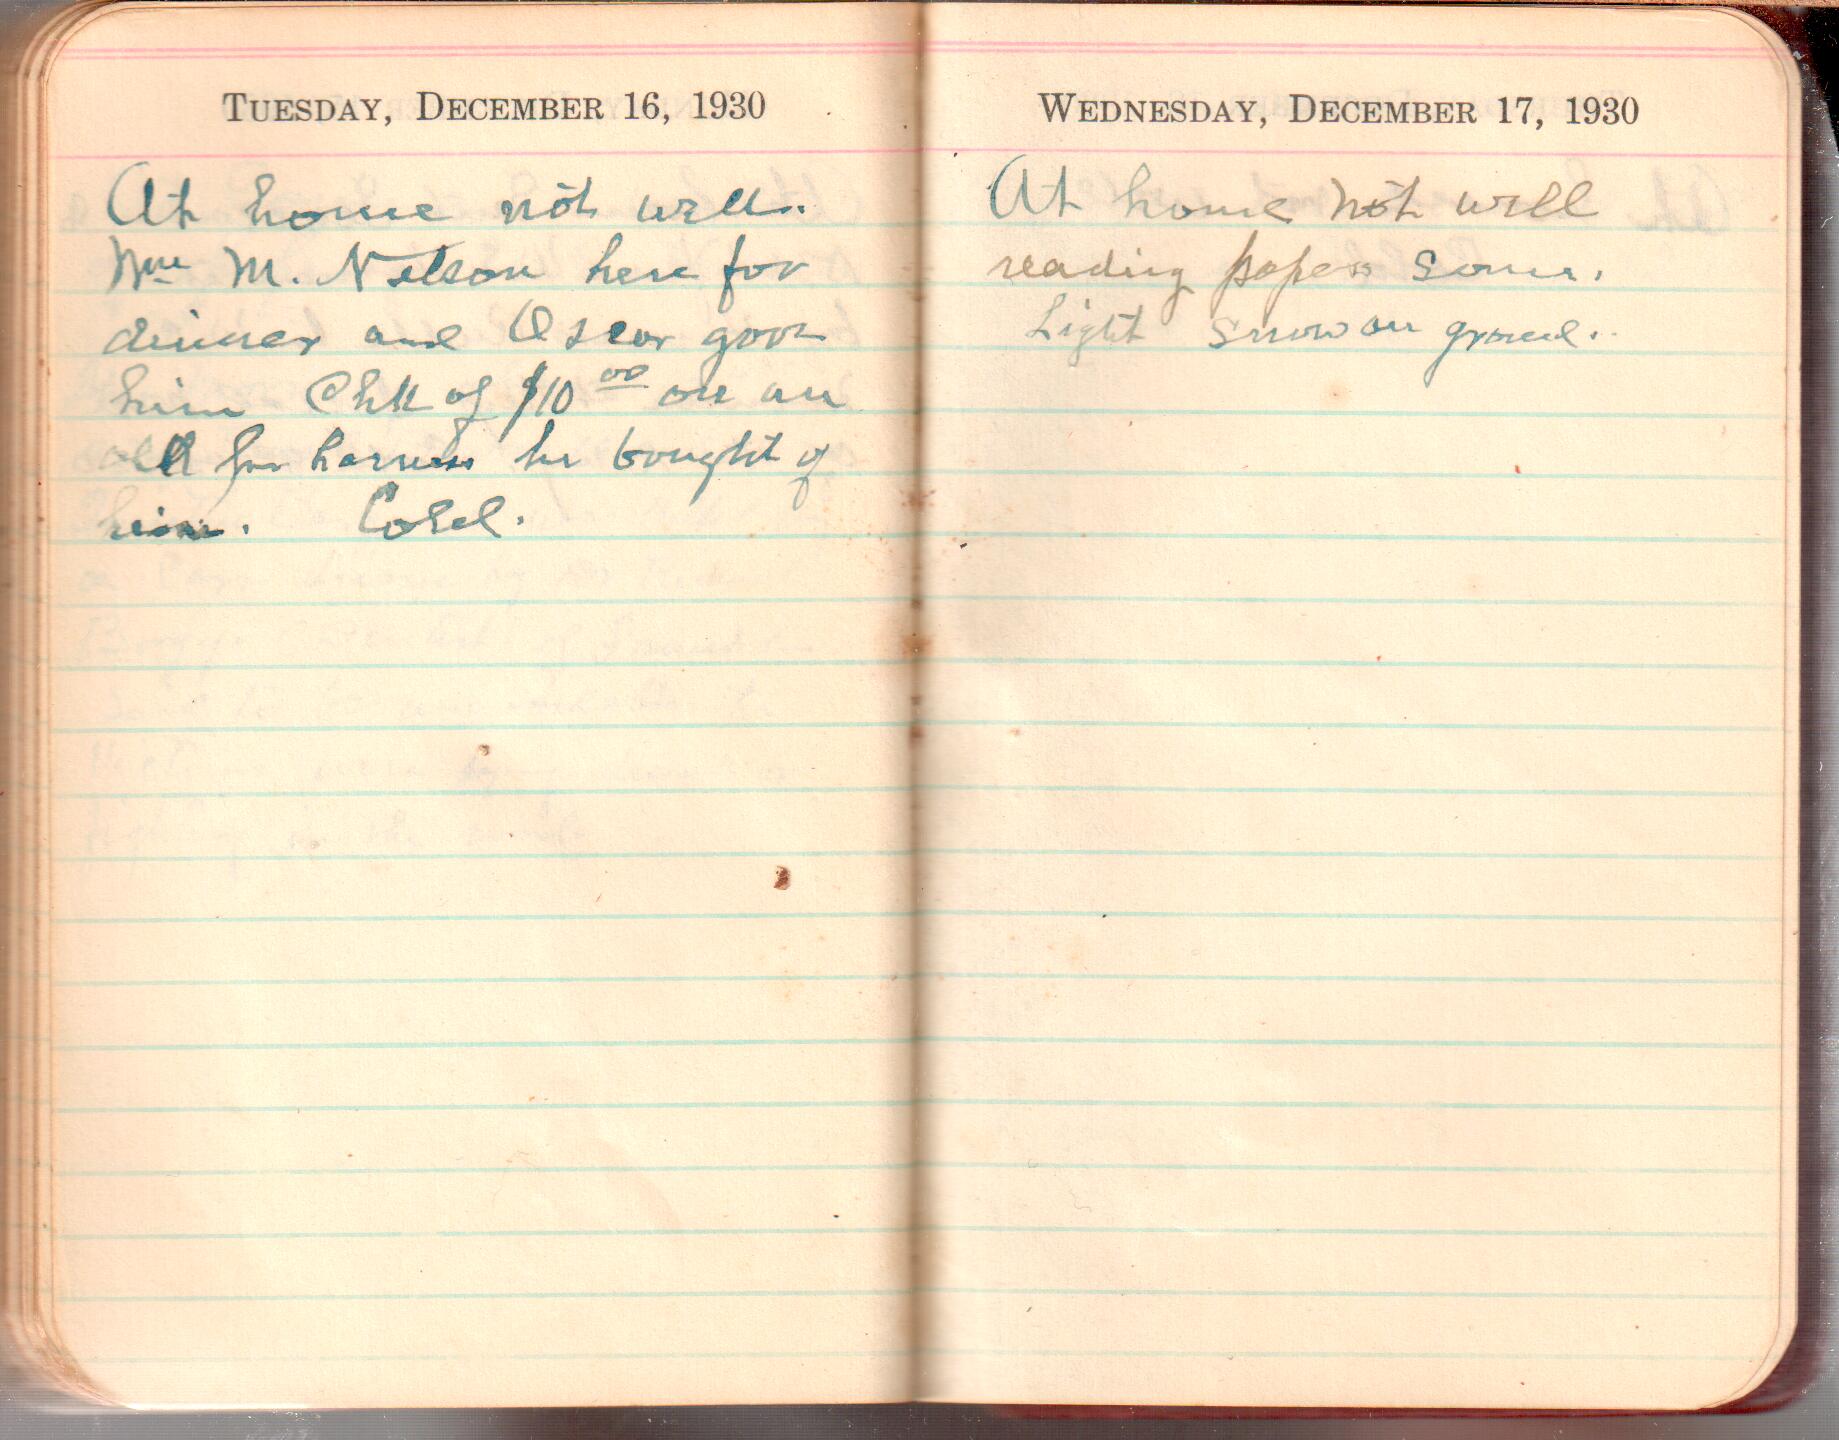 TUESDAY, DECEMBER 16, 1930
At home not well.
Wm M. Nelson here for
dinner and Oscar gave
him Chk of $10 00 on an
old for harness he bought of
him. Cold.
WEDNESDAY, DECEMBER 17, 1930
At home not well
reading papers some.
Light snow on ground.